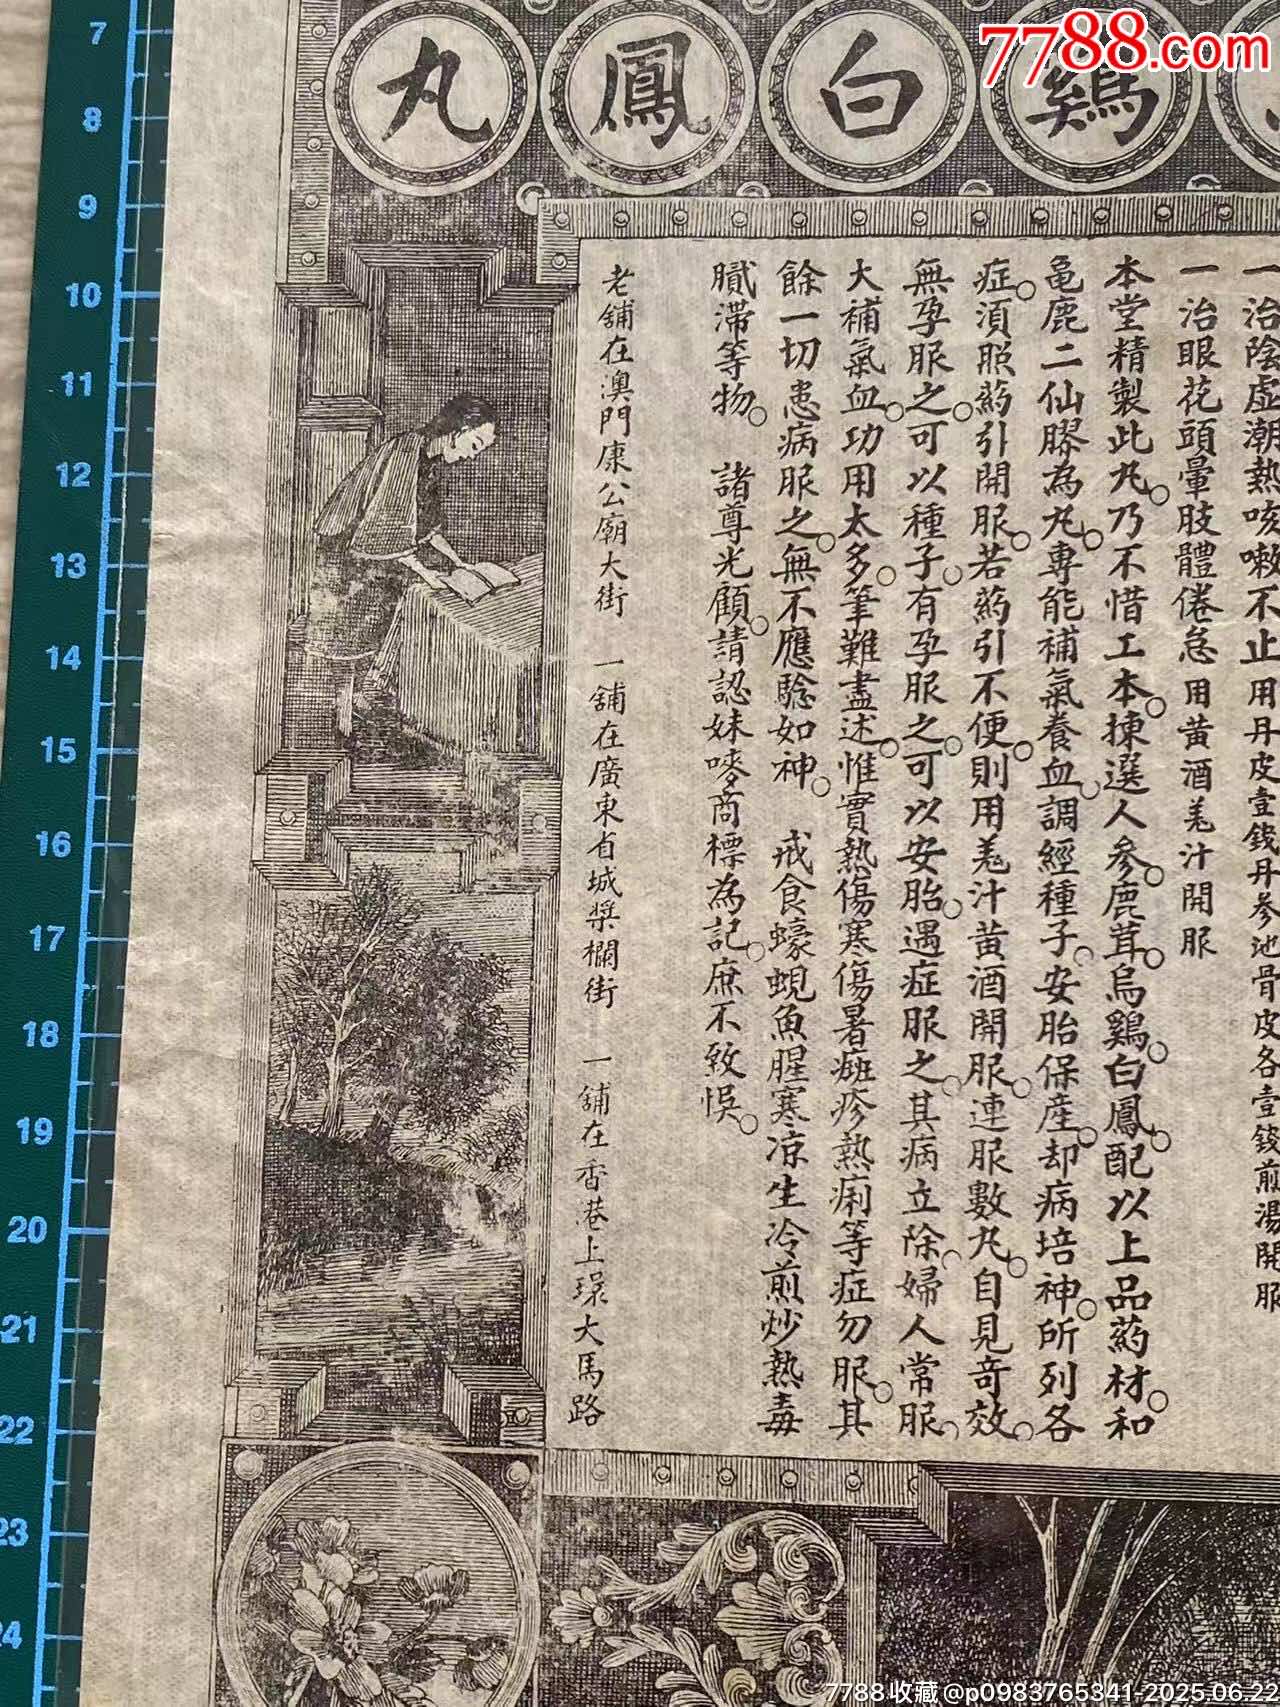 7788.com
鷄白鳳丸
一治陰虛潮熱咳嗽不止用丹皮壹錢丹參地骨皮各壹錢煎湯開服
一治眼花頭暈肢體倦怠用黃酒羌汁開服
本堂精製此丸乃不惜工本揀選人參鹿茸烏鷄白鳳配以上品葯材和
龜鹿二仙膠為丸專能補氣養血調經種子安胎保產却病培神所列各
症湏照葯引開服若葯引不便則用羌汁黃酒開服連服數丸自見奇效
無孕服之可以種子有孕服之可以安胎遇症服之其病立除婦人常服
大補氣血功用太多筆難盡述惟實熱傷寒傷暑癍疹熱痢等症勿服其
餘一切患病服之無不應驗如神 戒食蠔蜆魚腥寒凉生冷煎炒熱毒
膩滯等物 諸尊光顧請認妹嘜商標為記庶不致悞
老舖在澳門康公廟大街 一舖在廣東省城槳欄街 一舖在香港上環大馬路
7
8
9
10
11
12
13
14
15
16
17
18
19
20
21
22
23
24
7788收藏@p0983765341-2025.06.22